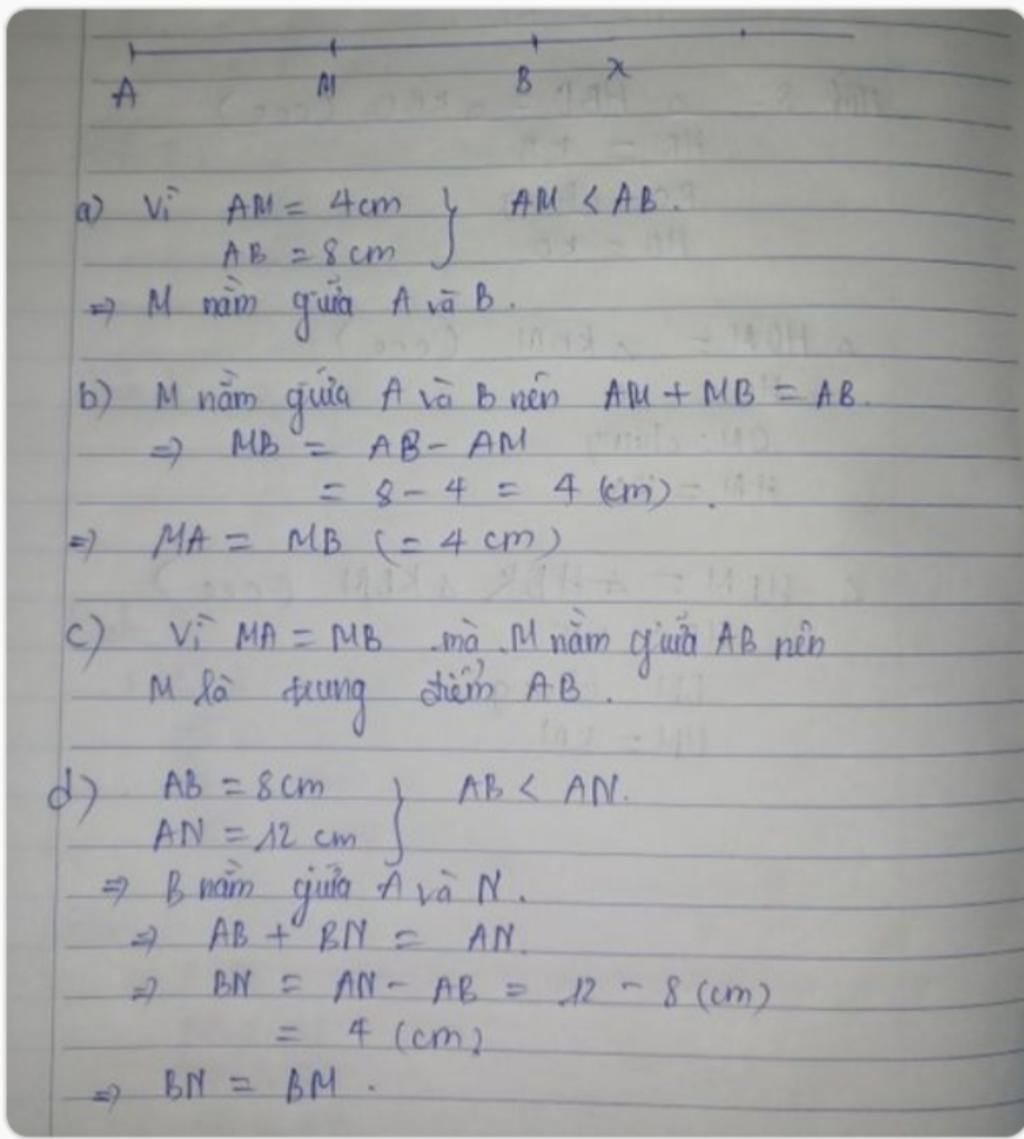 A M B x
a) Vì AM = 4cm } AM < AB.
AB = 8cm
⇒ M nằm giữa A và B.
b) M nằm giữa A và B nên AM + MB = AB.
⇒ MB = AB - AM
= 8 - 4 = 4 (cm).
⇒ MA = MB (= 4 cm)
c) Vì MA = MB mà M nằm giữa AB nên
M là trung điểm AB.
d) AB = 8cm } AB < AN.
AN = 12 cm
⇒ B nằm giữa A và N.
⇒ AB + BN = AN.
⇒ BN = AN - AB = 12 - 8 (cm)
= 4 (cm)
⇒ BN = BM.